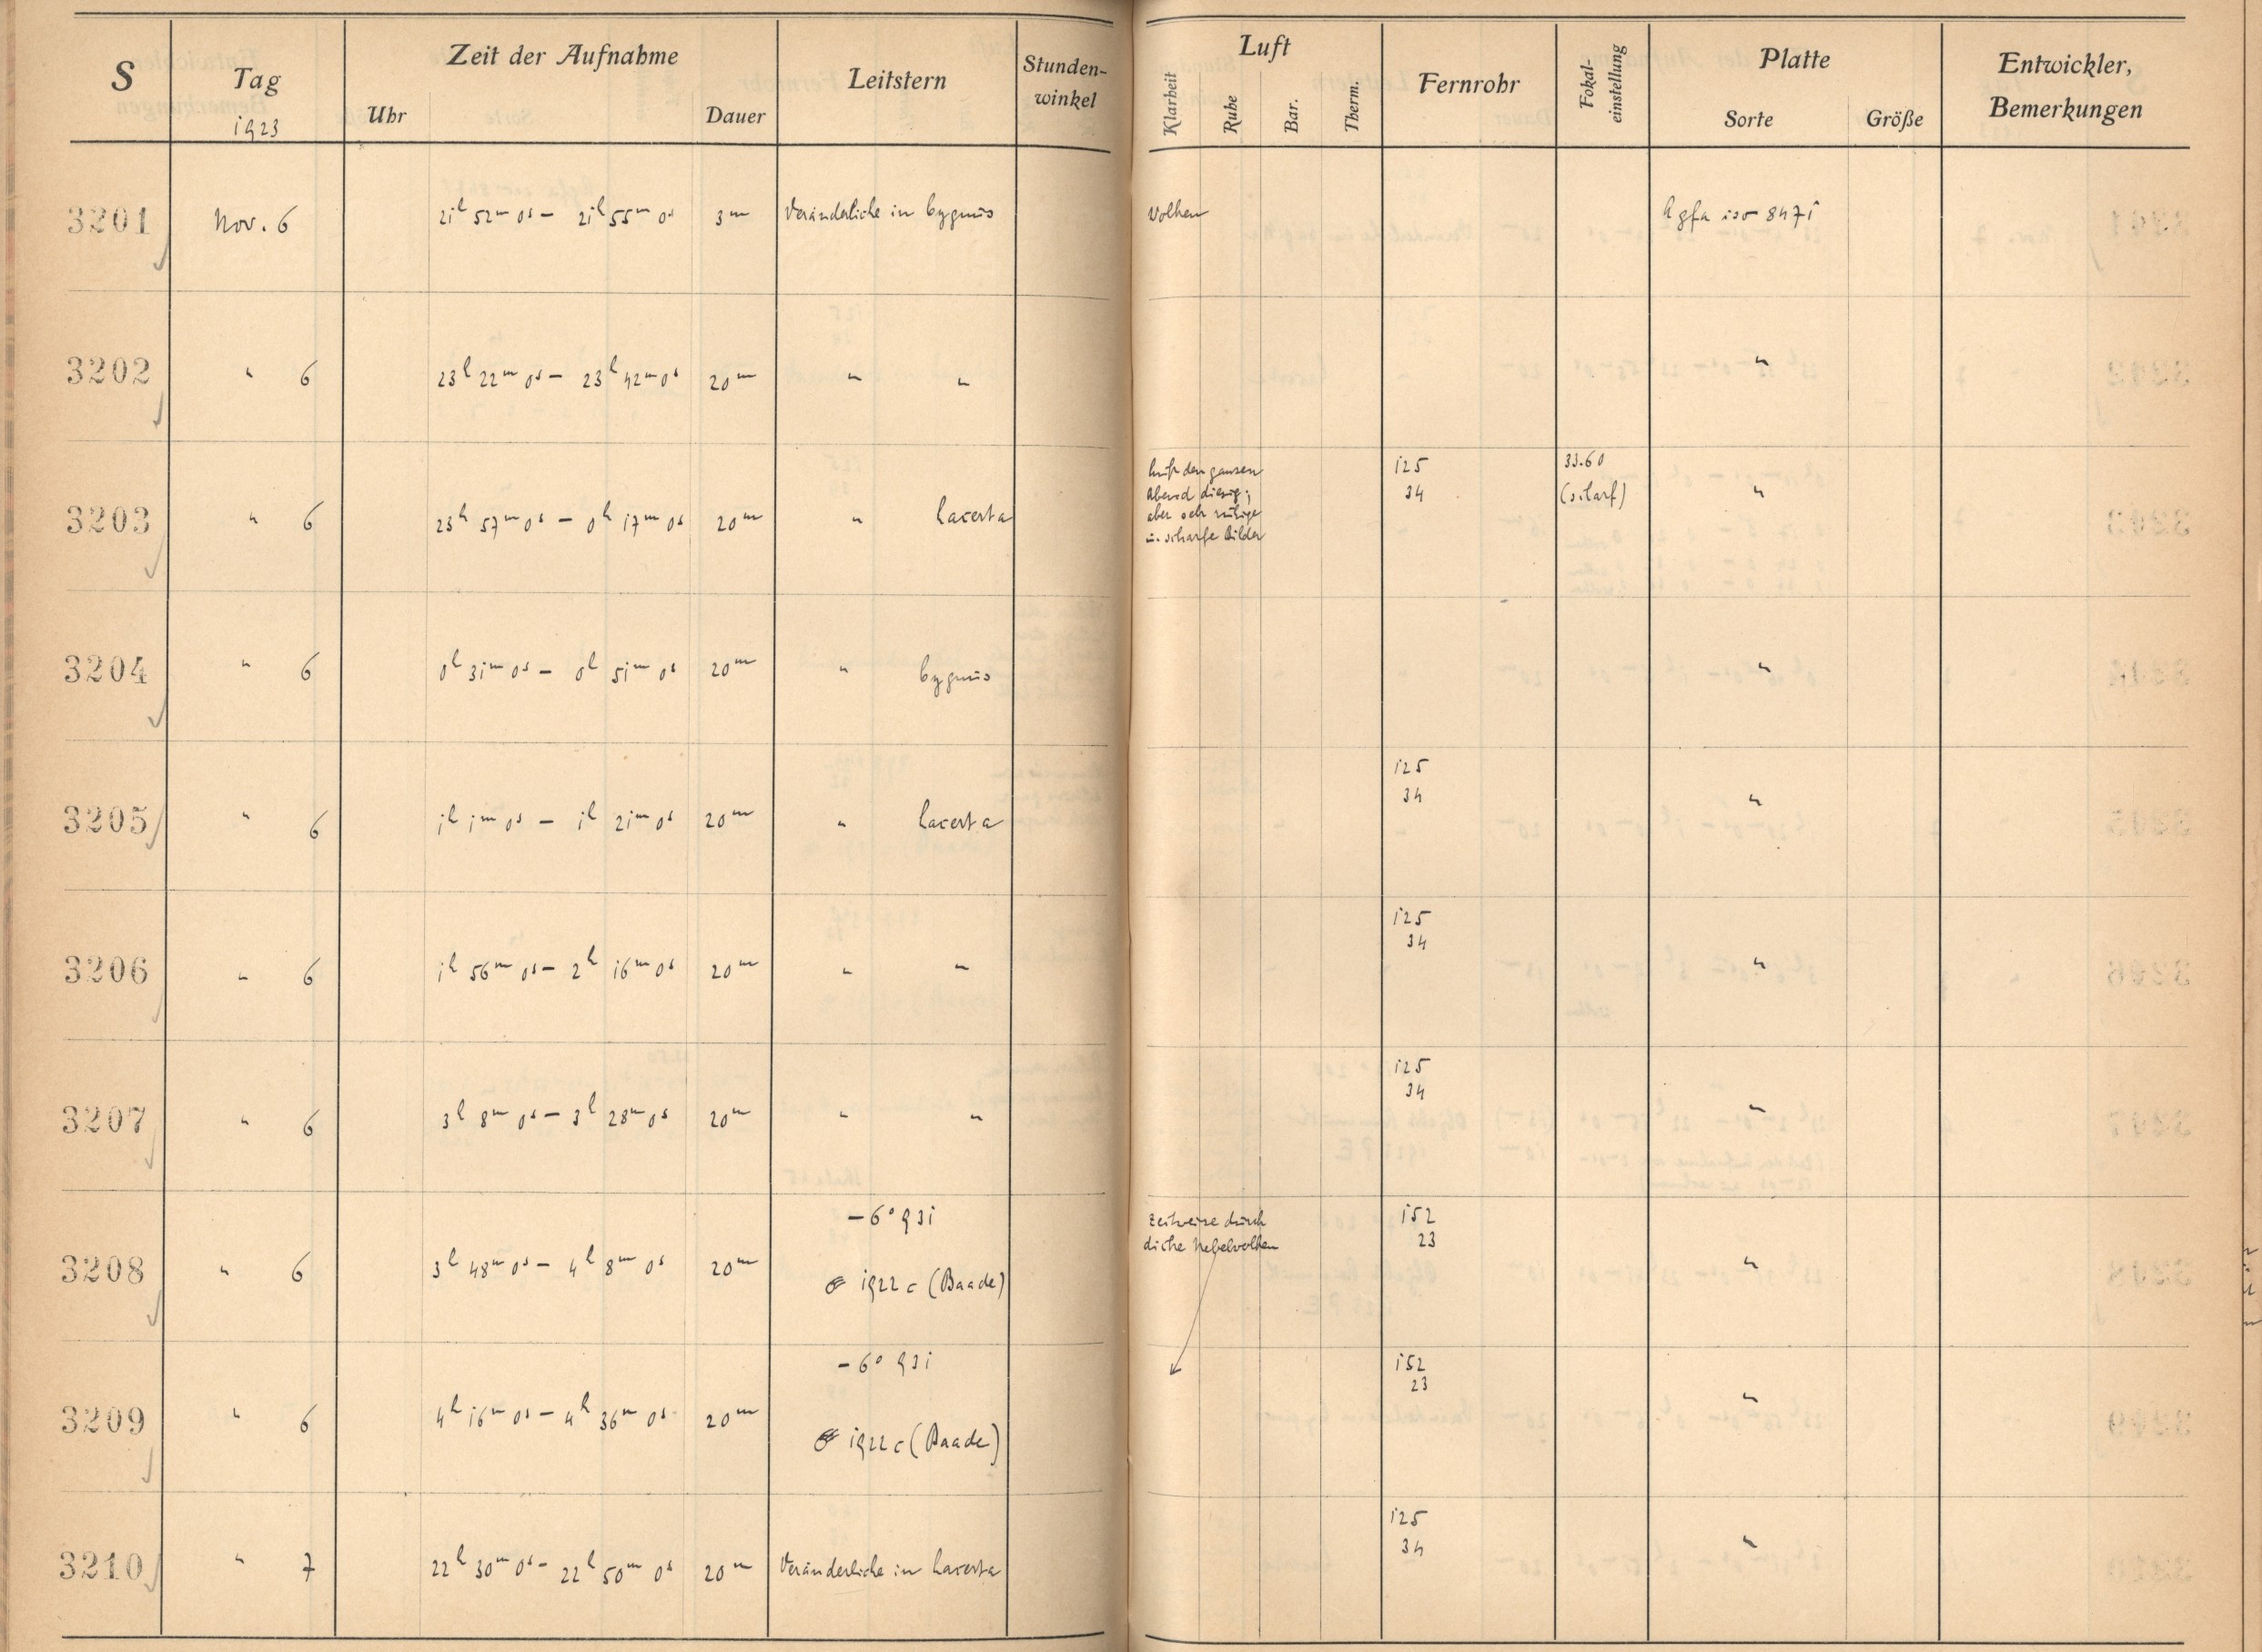 S Tag 1923 Zeit der Aufnahme Uhr Dauer Leitstern Stunden-winkel Luft Klarheit Ruhe Bar. Therm. Fernrohr Fokal-einstellung Platte Sorte Größe Entwickler, Bemerkungen
3201 Nov. 6 21h 52m 0s – 21h 55m 0s 3m Veränderliche in Cygnus Wolken Agfa iso 8471
3202 " 6 23h 22m 0s – 23h 42m 0s 20m " " "
3203 " 6 23h 57m 0s – 0h 17m 0s 20m " Lacerta
Luft den ganzen
Abend diesig;
aber sehr ruhige
u. scharfe Bilder
125
34
33.60
(scharf)
"
3204 " 6 0h 31m 0s – 0h 51m 0s 20m " Cygnus "
3205 " 6 1h 1m 0s – 1h 21m 0s 20m " Lacerta
125
34
"
3206 " 6 1h 56m 0s – 2h 16m 0s 20m " "
125
34
"
3207 " 6 3h 8m 0s – 3h 28m 0s 20m " "
125
34
"
3208 " 6 3h 48m 0s – 4h 8m 0s 20m
– 6° 931
1922 c (Baade)
zeitweise durch
dicke Nebelwolken
152
23
"
3209 " 6 4h 16m 0s – 4h 36m 0s 20m
– 6° 931
1922 c (Baade)
152
23
"
3210 " 7 22h 30m 0s – 22h 50m 0s 20m Veränderliche in Lacerta
125
34
"